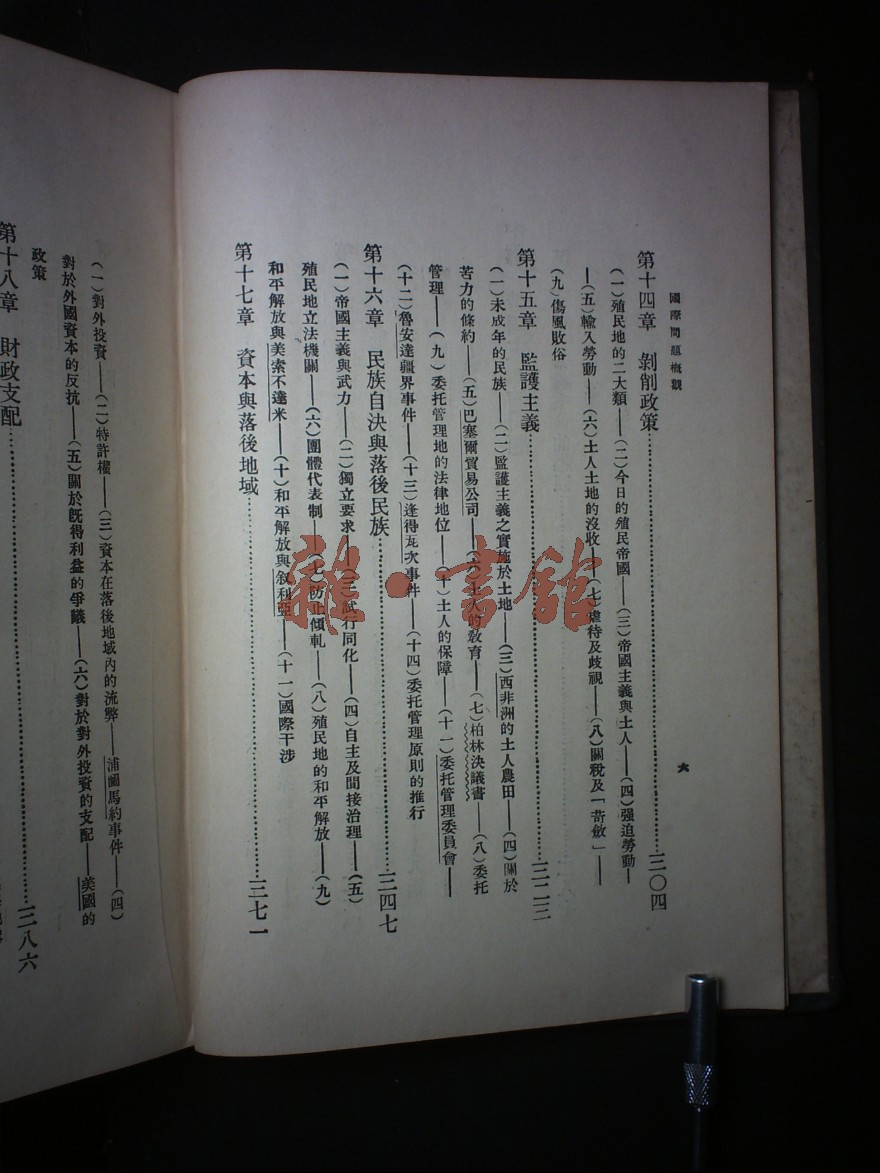 國際問題概觀
六
第十四章 剝削政策……三〇四
(一)殖民地的二大類——(二)今日的殖民帝國——(三)帝國主義與土人——(四)强迫勞動—
—(五)輸入勞動——(六)土人土地的沒收——(七)虐待及歧視——(八)關稅及「苛斂」——
(九)傷風敗俗
第十五章 監護主義……三二三
(一)未成年的民族——(二)監護主義之實施於土地——(三)西非洲的土人農田——(四)關於
苦力的條約——(五)巴塞爾貿易公司——(六)土人的敎育——(七)柏林決議書——(八)委托
管理——(九)委托管理地的法律地位——(十)土人的保障——(十一)委托管理委員會——
(十二)魯安達疆界事件——(十三)逢得瓦次事件——(十四)委托管理原則的推行
第十六章 民族自決與落後民族……三四七
(一)帝國主義與武力——(二)獨立要求——(三)試行同化——(四)自主及間接治理——(五)
殖民地立法機關——(六)團體代表制——(七)防止傾軋——(八)殖民地的和平解放——(九)
和平解放與美索不達米——(十)和平解放與敘利亞——(十一)國際干涉
第十七章 資本與落後地域……三七一
(一)對外投資——(二)特許權——(三)資本在落後地域內的流弊——浦圖馬約事件——(四)
對於外國資本的反抗——(五)關於旣得利益的爭議——(六)對於對外投資的支配——美國的
政策
第十八章 財政支配……三八六
雜·書館